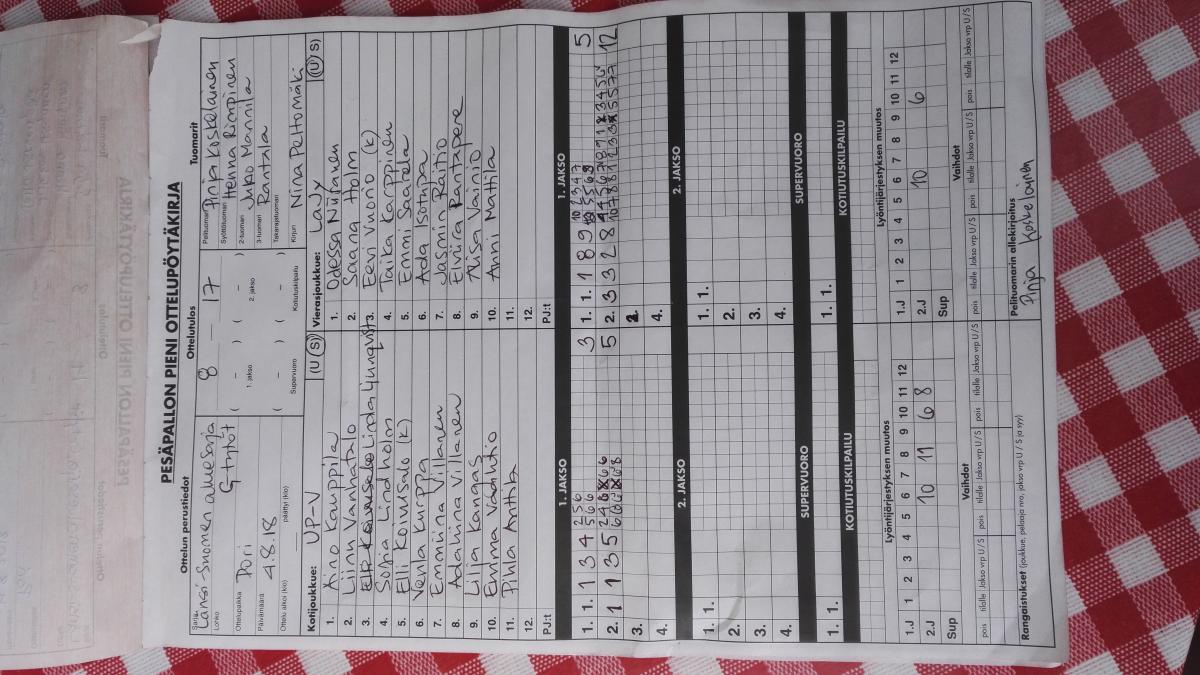 PESÄPALLON PIENI OTTELUPÖYTÄKIRJA
Ottelun perustiedot
Ottelutulos
Tuomarit
Sarja
Länsi-Suomen aluesarja
Lohko
G tytöt
Ottelupaikka
Pori
Päivämäärä
4.8.18
Ottelu alkoi (klo)
päättyi (klo)
8 – 17
( – ) ( – )
1. jakso
2. jakso
( – ) ( – )
Supervuoro
Kotiutuskilpailu
Pelituomari
Pinja Koskelainen
Syöttötuomari
Henna Rimpinen
2-tuomari
Juho Mannila
3-tuomari
Rantala
Takarajatuomari
Kirjuri
Niina Peltomäki
Kotijoukkue: UP-V (U S)
1. Aino Kauppila
2. Liinu Vanhatalo
3. Linda Ljungqvist
4. Sofia Lindholm
5. Elli Koivusalo (K)
6. Venla Kurppa
7. Emmiina Villanen
8. Adaliina Villanen
9. Lilja Kangas
10. Emma Vädhtiö
11. Pihla Anttka
12.
PJ:t
Vierasjoukkue: LaJy (U S)
1. Odessa Niitanen
2. Saana Holm
3. Eevi Vuorio (K)
4. Taika Karppinen
5. Emmi Saarela
6. Ada Isotupa
7. Jasmin Raitio
8. Elviira Rantapere
9. Aisa Vainio
10. Anni Mattila
11.
12.
PJ:t
1. JAKSO
1. JAKSO
1. 1. 1 3 4 3
2. 1 3 5 5
3.
4.
1. 1. 1 8 9 5
2. 3 3 2 8 12
4.
2. JAKSO
2. JAKSO
1. 1.
2.
3.
4.
1. 1.
2.
3.
4.
SUPERVUORO
SUPERVUORO
1. 1.
1. 1.
KOTIUTUSKILPAILU
KOTIUTUSKILPAILU
Lyöntijärjestyksen muutos
1.J 1 2 3 4 5 6 7 8 9 10 11 12
2.J 10 11 6 8
Sup
Lyöntijärjestyksen muutos
1.J 1 2 3 4 5 6 7 8 9 10 11 12
2.J 10 6
Sup
Vaihdot
Vaihdot
pois tilalle Jakso vrp U/S pois tilalle Jakso vrp U/S pois tilalle Jakso vrp U/S
pois tilalle Jakso vrp U/S pois tilalle Jakso vrp U/S pois tilalle Jakso vrp U/S
Rangaistukset (joukkue, pelaaja nro, jakso vrp U / S ja syy)
Pelituomarin allekirjoitus
Pinja Koskelainen